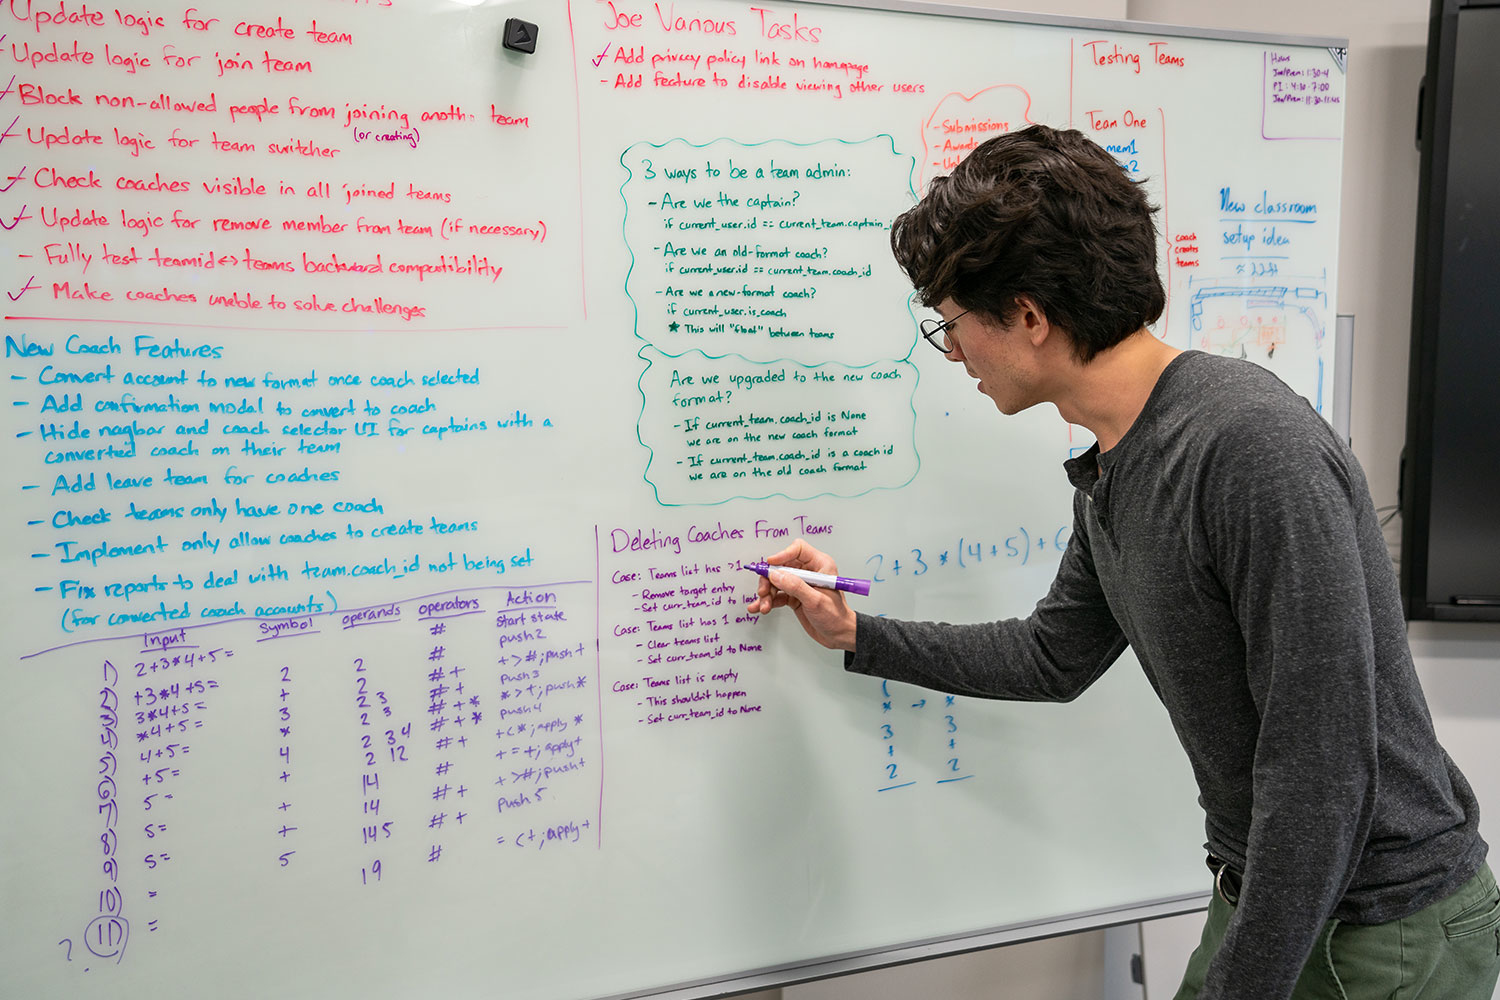 Update logic for create team
Update logic for join team
Block non-allowed people from joining anoth team
(or creating)
Update logic for team switcher
Check coaches visible in all joined teams
Update logic for remove member from team (if necessary)
- Fully test teamid<->teams backward computibility
Make coaches unable to solve challenges
New Coach Features
- Convert account to new format once coach selected
- Add confirmation modal to convert to coach
- Hide nagbar and coach selector UI for captains with a
converted coach on their team
- Add leave team for coaches
- Check teams only have one coach
- Implement only allow coaches to create teams
- Fix reports to deal with team.coach_id not being set
(for converted coach accounts)
Input Symbol operands operators Action
1) 2+3*4+5= # start state
2) +3*4+5= 2 2 # push 2
3) 3*4+5= + 2 # + + > #; push +
4) *4+5= 3 2 3 # + push 3
5) 4+5= * 2 3 # + * * > +; push *
6) +5= 4 2 3 4 # + * push 4
7) 5= + 2 12 # + + < *; apply *
8) 5= + 14 # + = +; apply +
9) 5= + 14 # + + > #; push +
10) = 5 14 5 # + push 5
11) = 19 # = < +; apply +
?
Joe Various Tasks
Add privacy policy link on homepage
- Add feature to disable viewing other users
3 ways to be a team admin:
- Are we the captain?
if current_user.id == current_team.captain_i
- Are we an old-format coach?
if current_user.id == current_team.coach_id
- Are we a new-format coach?
if current_user.is_coach
* This will "float" between teams
Are we upgraded to the new coach
format?
- If current_team.coach_id is None
we are on the new coach format
- If current_team.coach_id is a coach id
we are on the old coach format
Deleting Coaches From Teams
Case: Teams list has >1
- Remove target entry
- Set curr_team_id to last
Case: Teams list has 1 entry
- Clear teams list
- Set curr_team_id to None
Case: Teams list is empty
- This shouldn't happen
- Set curr_team_id to None
- Submissions
2+3*(4+5)+6
( 
* → *
3 3
+ +
2 2
Testing Teams
Team One
mem1
2
coach
creates
teams
Hours
Joe/Prem: 1:30-4
PI: 4:30-7:00
New classroom
setup idea
≈ 22ft